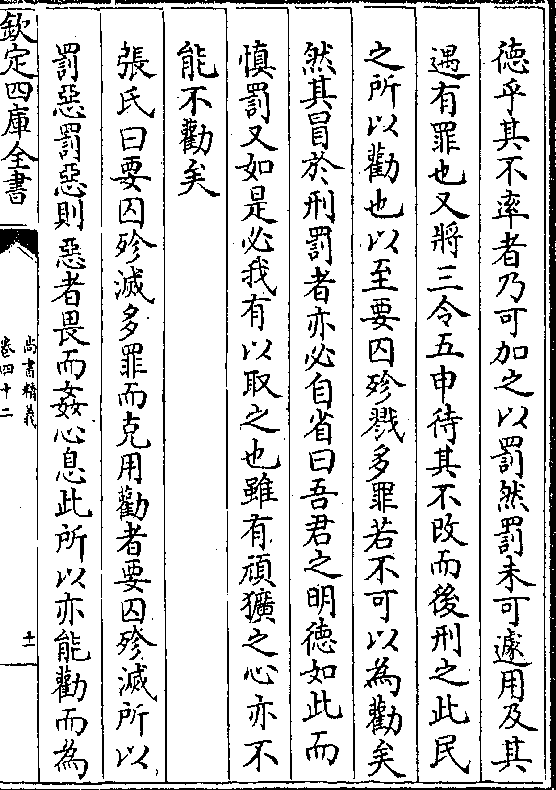 德乎其不率者乃可加之以罰然罰未可遽用及其
遇有罪也又將三令五申待其不改而後刑之此民
之所以勸也以至要囚殄戮多罪若不可以為勸矣
然其冒於刑罰者亦必自省曰吾君之明德如此而
慎罰又如是必我有以取之也雖有頑獷之心亦不
能不勸矣
張氏曰要囚殄滅多罪而克用勸者要囚殄滅所以
罰惡罰惡則惡者畏而姦心息此所以亦能勸而為
欽定四庫全書
尚書精義
卷四十二
十一